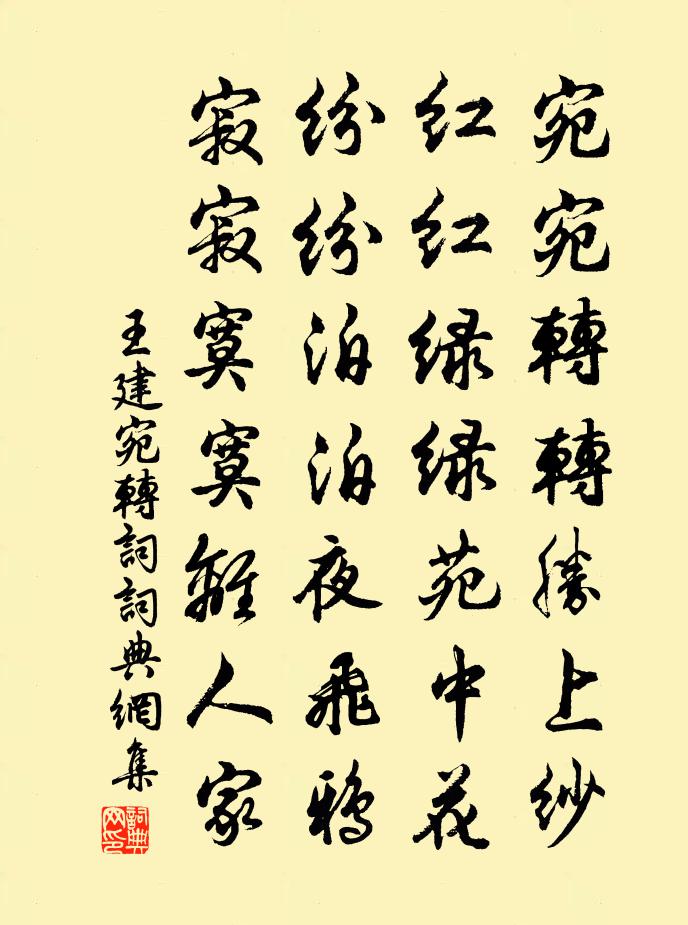 宛宛轉轉勝上紗
紅紅緑緑苑中花
紛紛泊泊夜飛鴉
寂寂寞寞離人家
王建宛轉詞詞典網集
詞典
网印